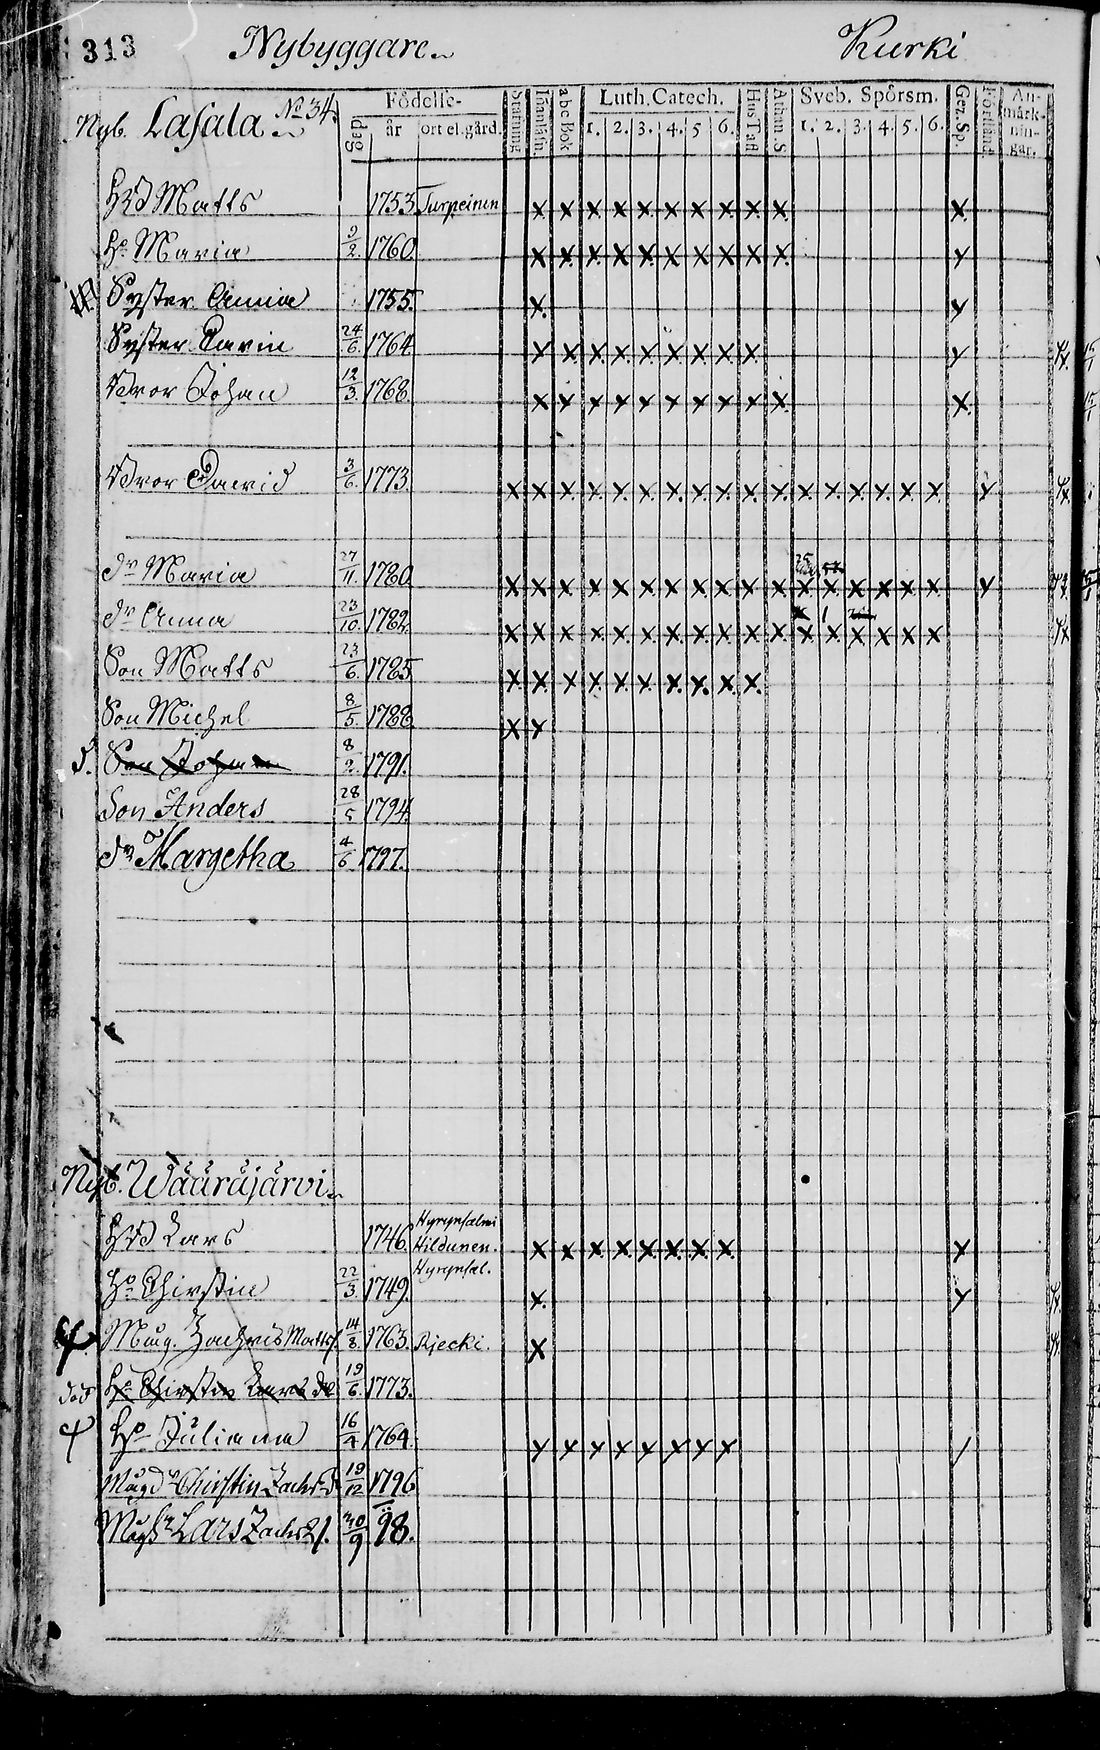 313 Nybyggare Kurki
Nyb. Lasala No 34.
Födelse- dag år ort el. gård. Stafning Innanläsn. abc Bok Luth. Catech. 1. 2. 3. 4. 5 6. Hus Tafl Athan. S Sveb. Spörsm. 1. 2. 3. 4. 5. 6. Ger. Sp. Förstånd. An-märk-nin-gar.
Matts 1753 Turpeinen x x x x x x x x x x x
Ho Maria 9/2. 1760 x x x x x x x x x x y
Syster Anna 1755. x y
Syster Carin 24/6. 1764 x x x x x x x x x y
Bror Johan 12/3. 1768 x x x x x x x x x x x
Bror David 3/6. 1773 x x x x x x x x x x x x x x x x x y
dr Maria 27/11. 1780 x x x x x x x x x x x x x x x x x y
dr Anna 23/10. 1782. x x x x x x x x x x x x x x x x x
Son Matts 23/6. 1785 x x x x x x x x x x
Son Michel 8/5. 1788 x x
d. Son Johan 8/2. 1791.
Son Anders 28/5 1794
dr Margetha 4/6. 1797.
Nyb. Wääräjärvi
Lars 1746. Hyrynsalmi Hildunen. x x x x x x x x x
Ho Chirstin 22/3. 1749. Hyrynsal. x y
Måg. Zachris Matts. 14/8. 1763. Rjecki. x
död Ho Chirstin Lars dr 19/6. 1773.
Ho Juliana 16/4 1764 x x x x x x x x /
Mågdr Chirstin Zachrsd 19/12 1796
Lars Zachs. 30/9 98.